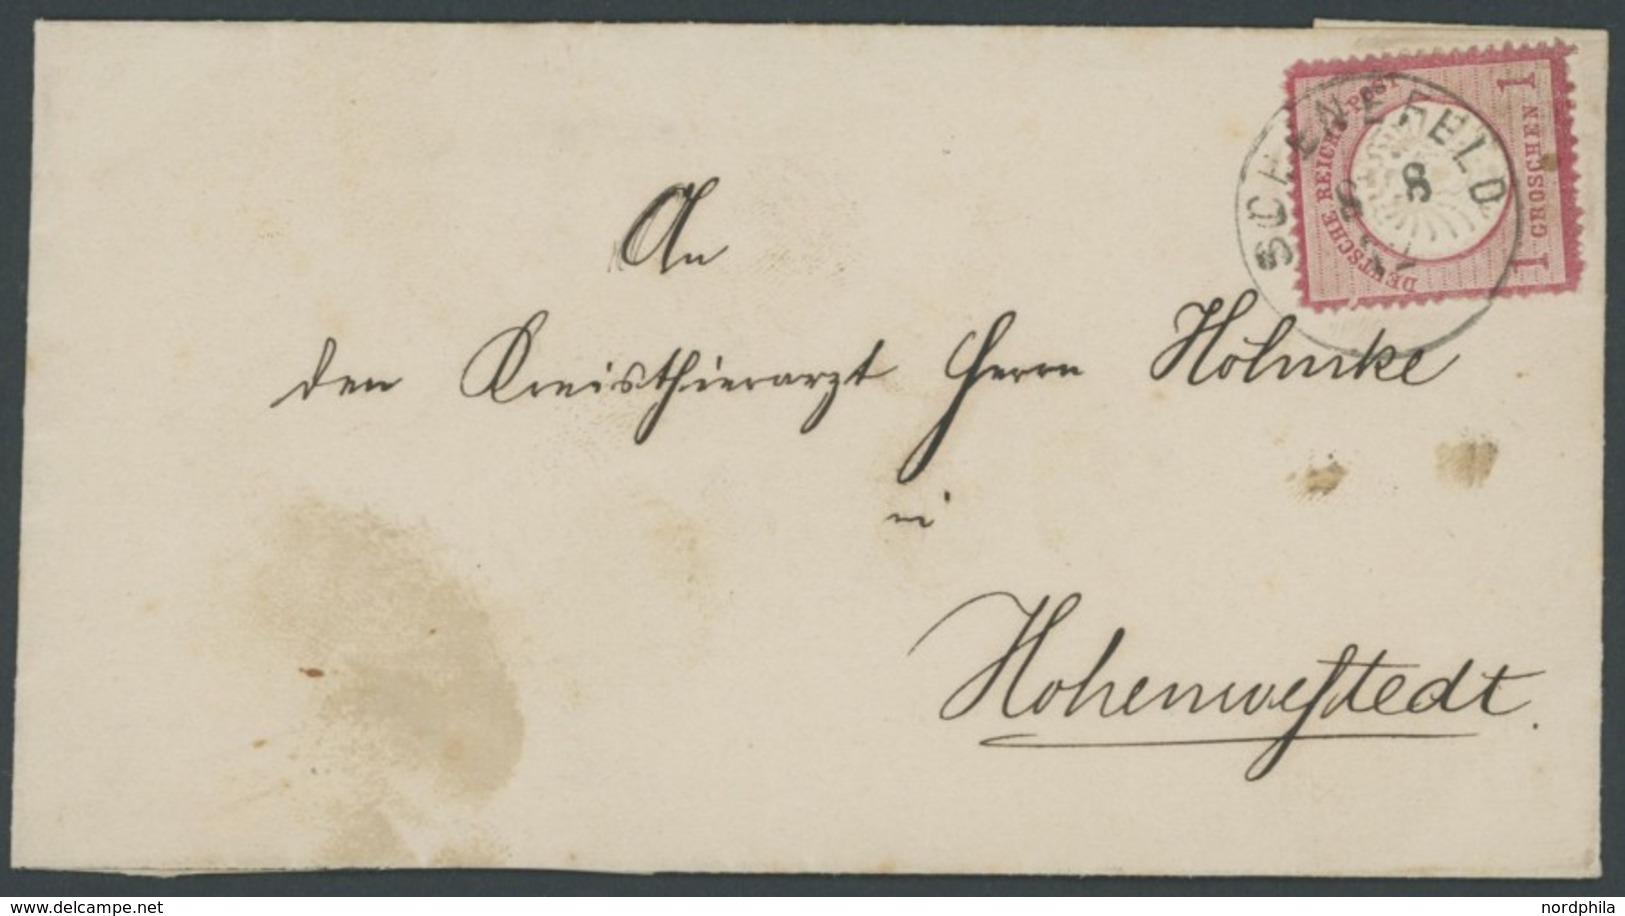 DEUTSCHE REICHS-POST
1 GROSCHEN 1
SCHENEFELD
8
An
den Kreisthierarzt Herrn Hölmcke
in
Hohenwestedt.
www.delcampe.net
nordphila